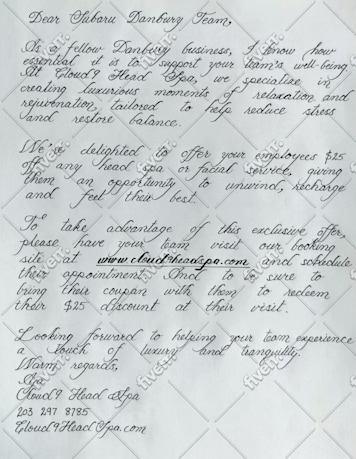 Dear Subaru Danbury Team,
As a fellow Danbury business, I know how
essential it is to support your team's well-being.
At Cloud9 Head Spa, we specialize in
creating luxurious moments of relaxation and
rejuvenation, tailored to help reduce stress
and restore balance.
We're delighted to offer your employees $25
off any head spa or facial service, giving
them an opportunity to unwind, recharge
and feel their best.
To take advantage of this exclusive offer,
please have your team visit our booking
site at www.cloud9headspa.com and schedule
their appointment. And to be sure to
bring their coupon with them to redeem
their $25 discount at their visit.
Looking forward to helping your team experience
a touch of luxury and tranquility.
Warm regards,
Cloud9 Head Spa
203 297 8785
Cloud9HeadSpa.com
fiverr